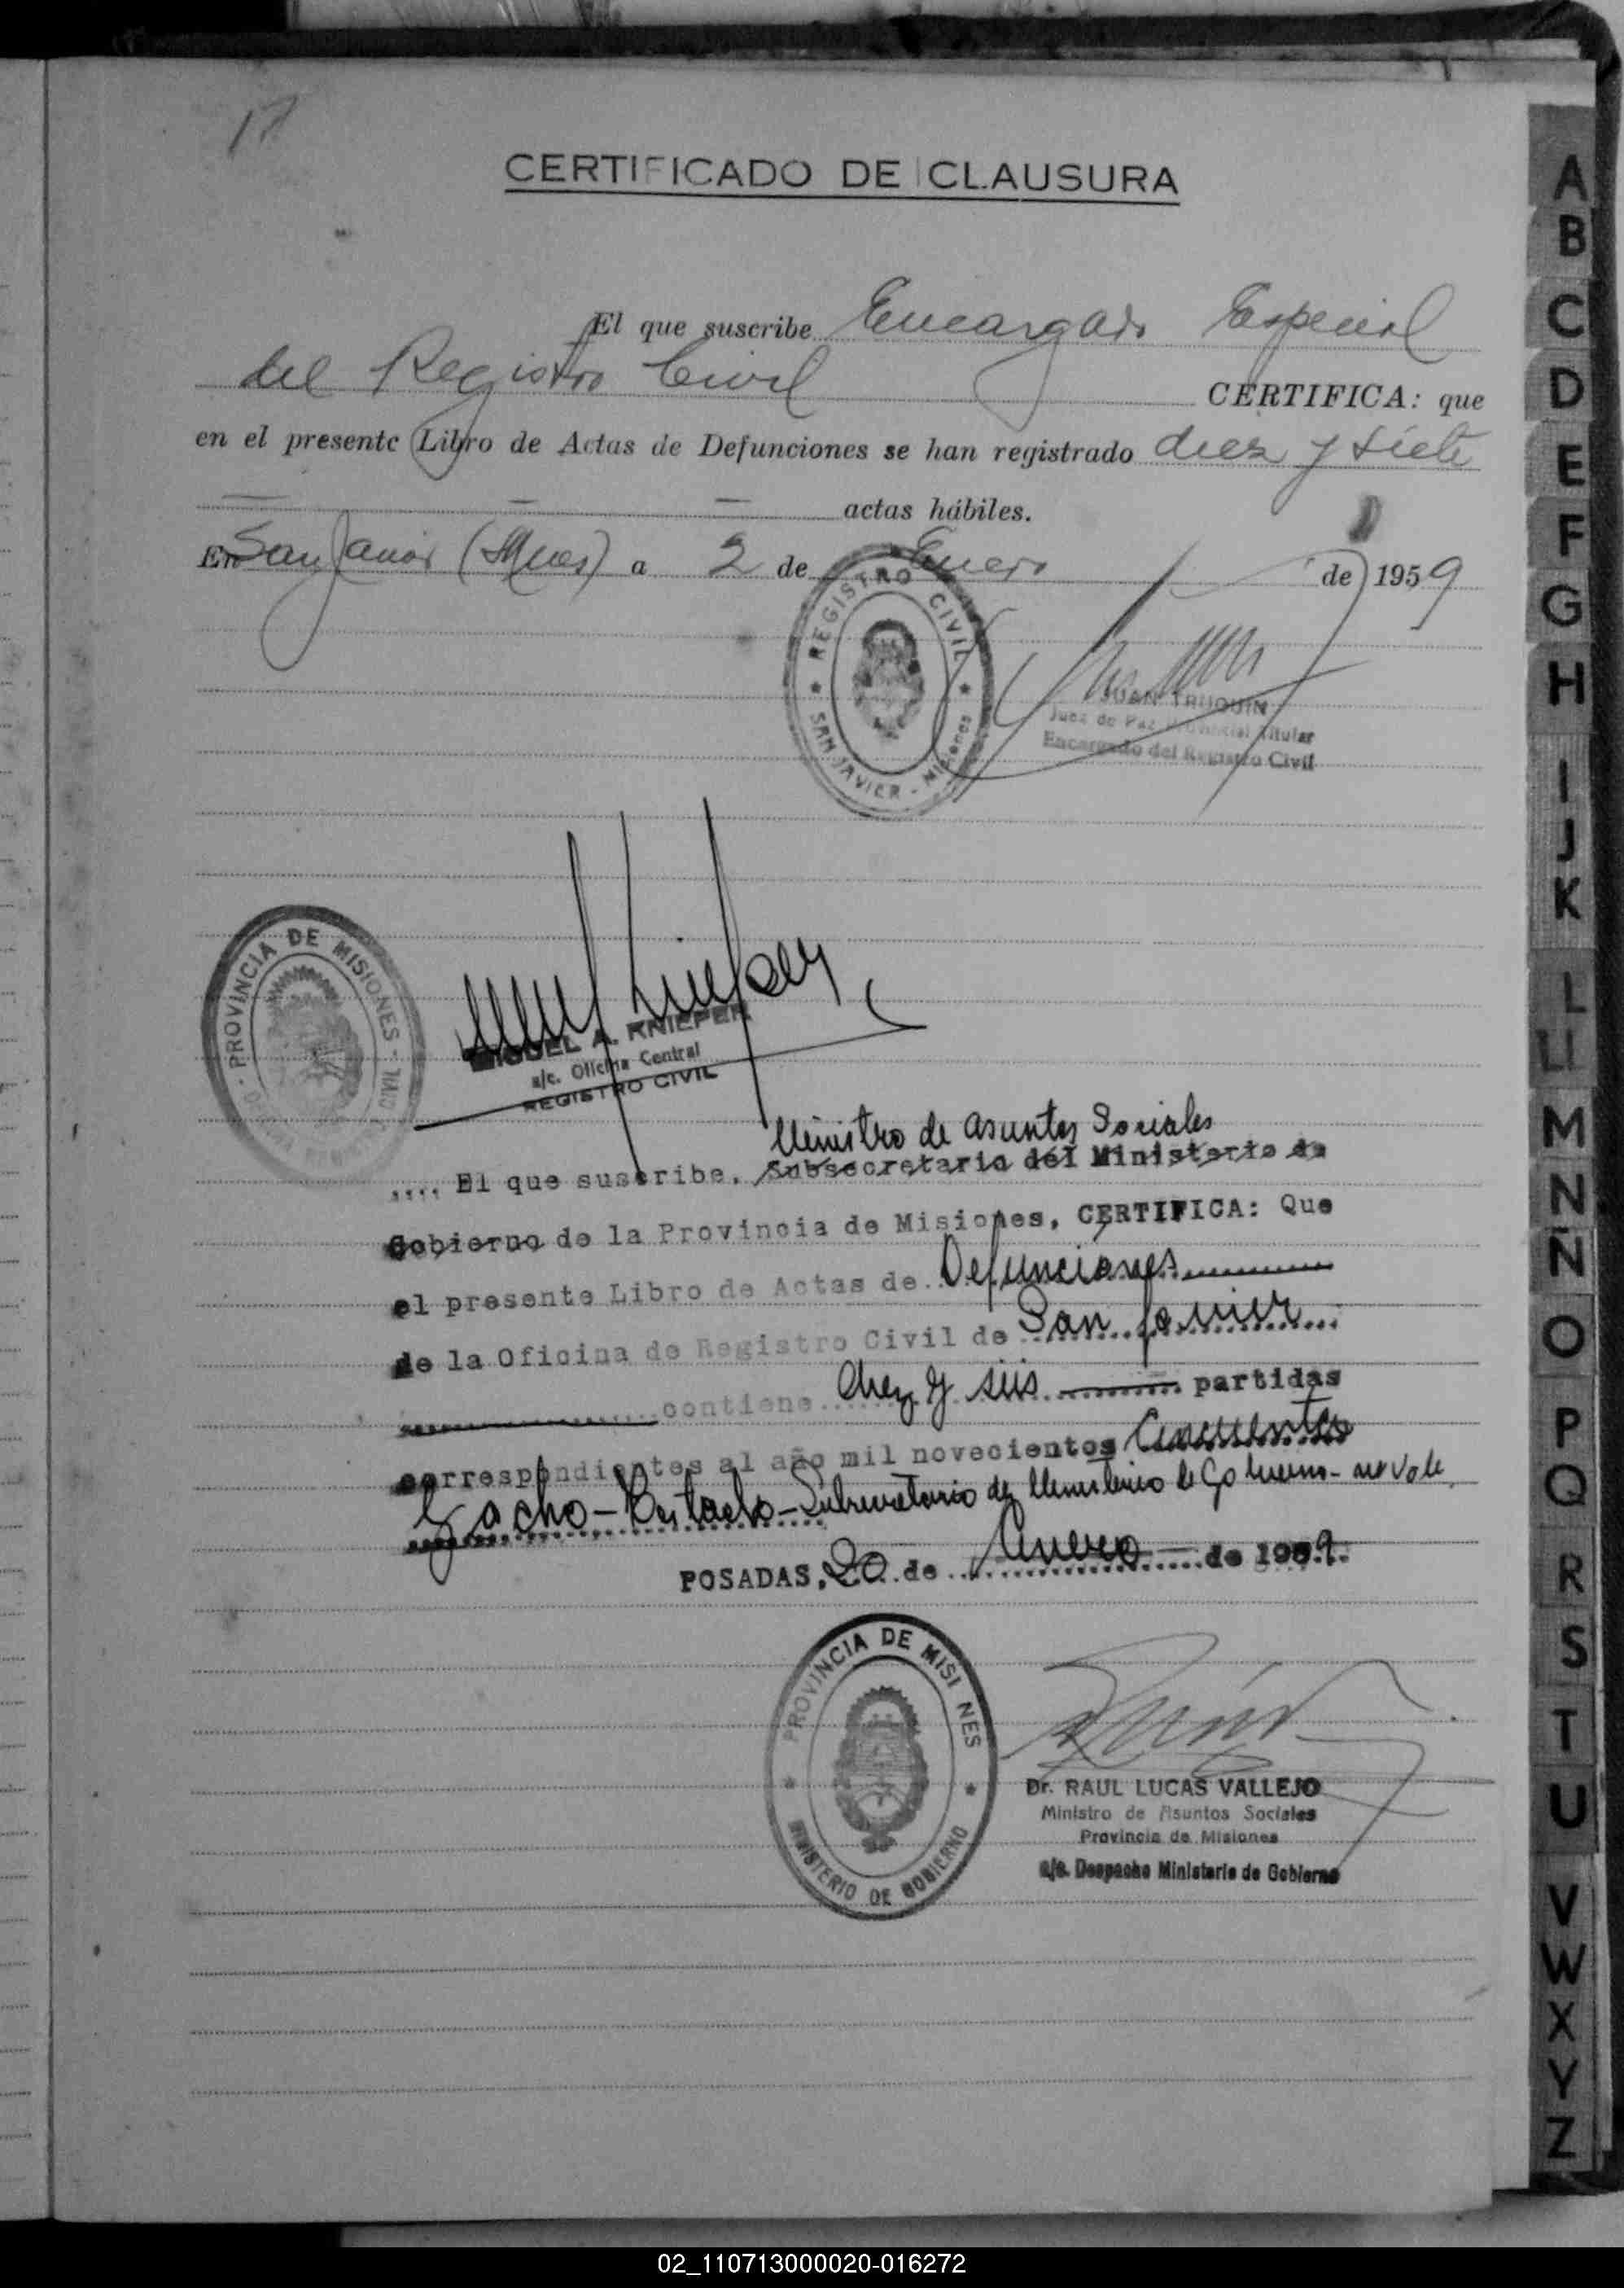 17
CERTIFICADO DE CLAUSURA
El que suscribe Encargado Especial
del Registro Civil CERTIFICA: que
en el presente Libro de Actas de Defunciones se han registrado diez y siete
— — — actas hábiles.
En San Javier (Mnes) a 2 de Enero de 1959
REGISTRO CIVIL
SAN JAVIER - Misiones
JUAN TRUQUIN
Juez de Paz Provincial Titular
Encargado del Registro Civil
PROVINCIA DE MISIONES
CIVIL
MIGUEL A. KNIEPER
a/c. Oficina Central
REGISTRO CIVIL
Ministro de Asuntos Sociales
.... El que suscribe, Subsecretario del Ministerio de
Gobierno de la Provincia de Misiones, CERTIFICA: Que
el presente Libro de Actas de Defunciones
de la Oficina de Registro Civil de San Javier
contiene diez y seis partidas
correspondientes al año mil novecientos cincuenta
y ocho - Testado - Subsecretario del Ministerio de Gobierno - no vale
POSADAS, 20 de Enero de 1959.
PROVINCIA DE MISI NES
MINISTERIO DE GOBIERNO
Dr. RAUL LUCAS VALLEJO
Ministro de Asuntos Sociales
Provincia de Misiones
a/c. Despacho Ministerio de Gobierno
A
B
C
D
E
F
G
H
I
J
K
L
LL
M
N
Ñ
O
P
Q
R
S
T
U
V
W
X
Y
Z
02_110713000020-016272